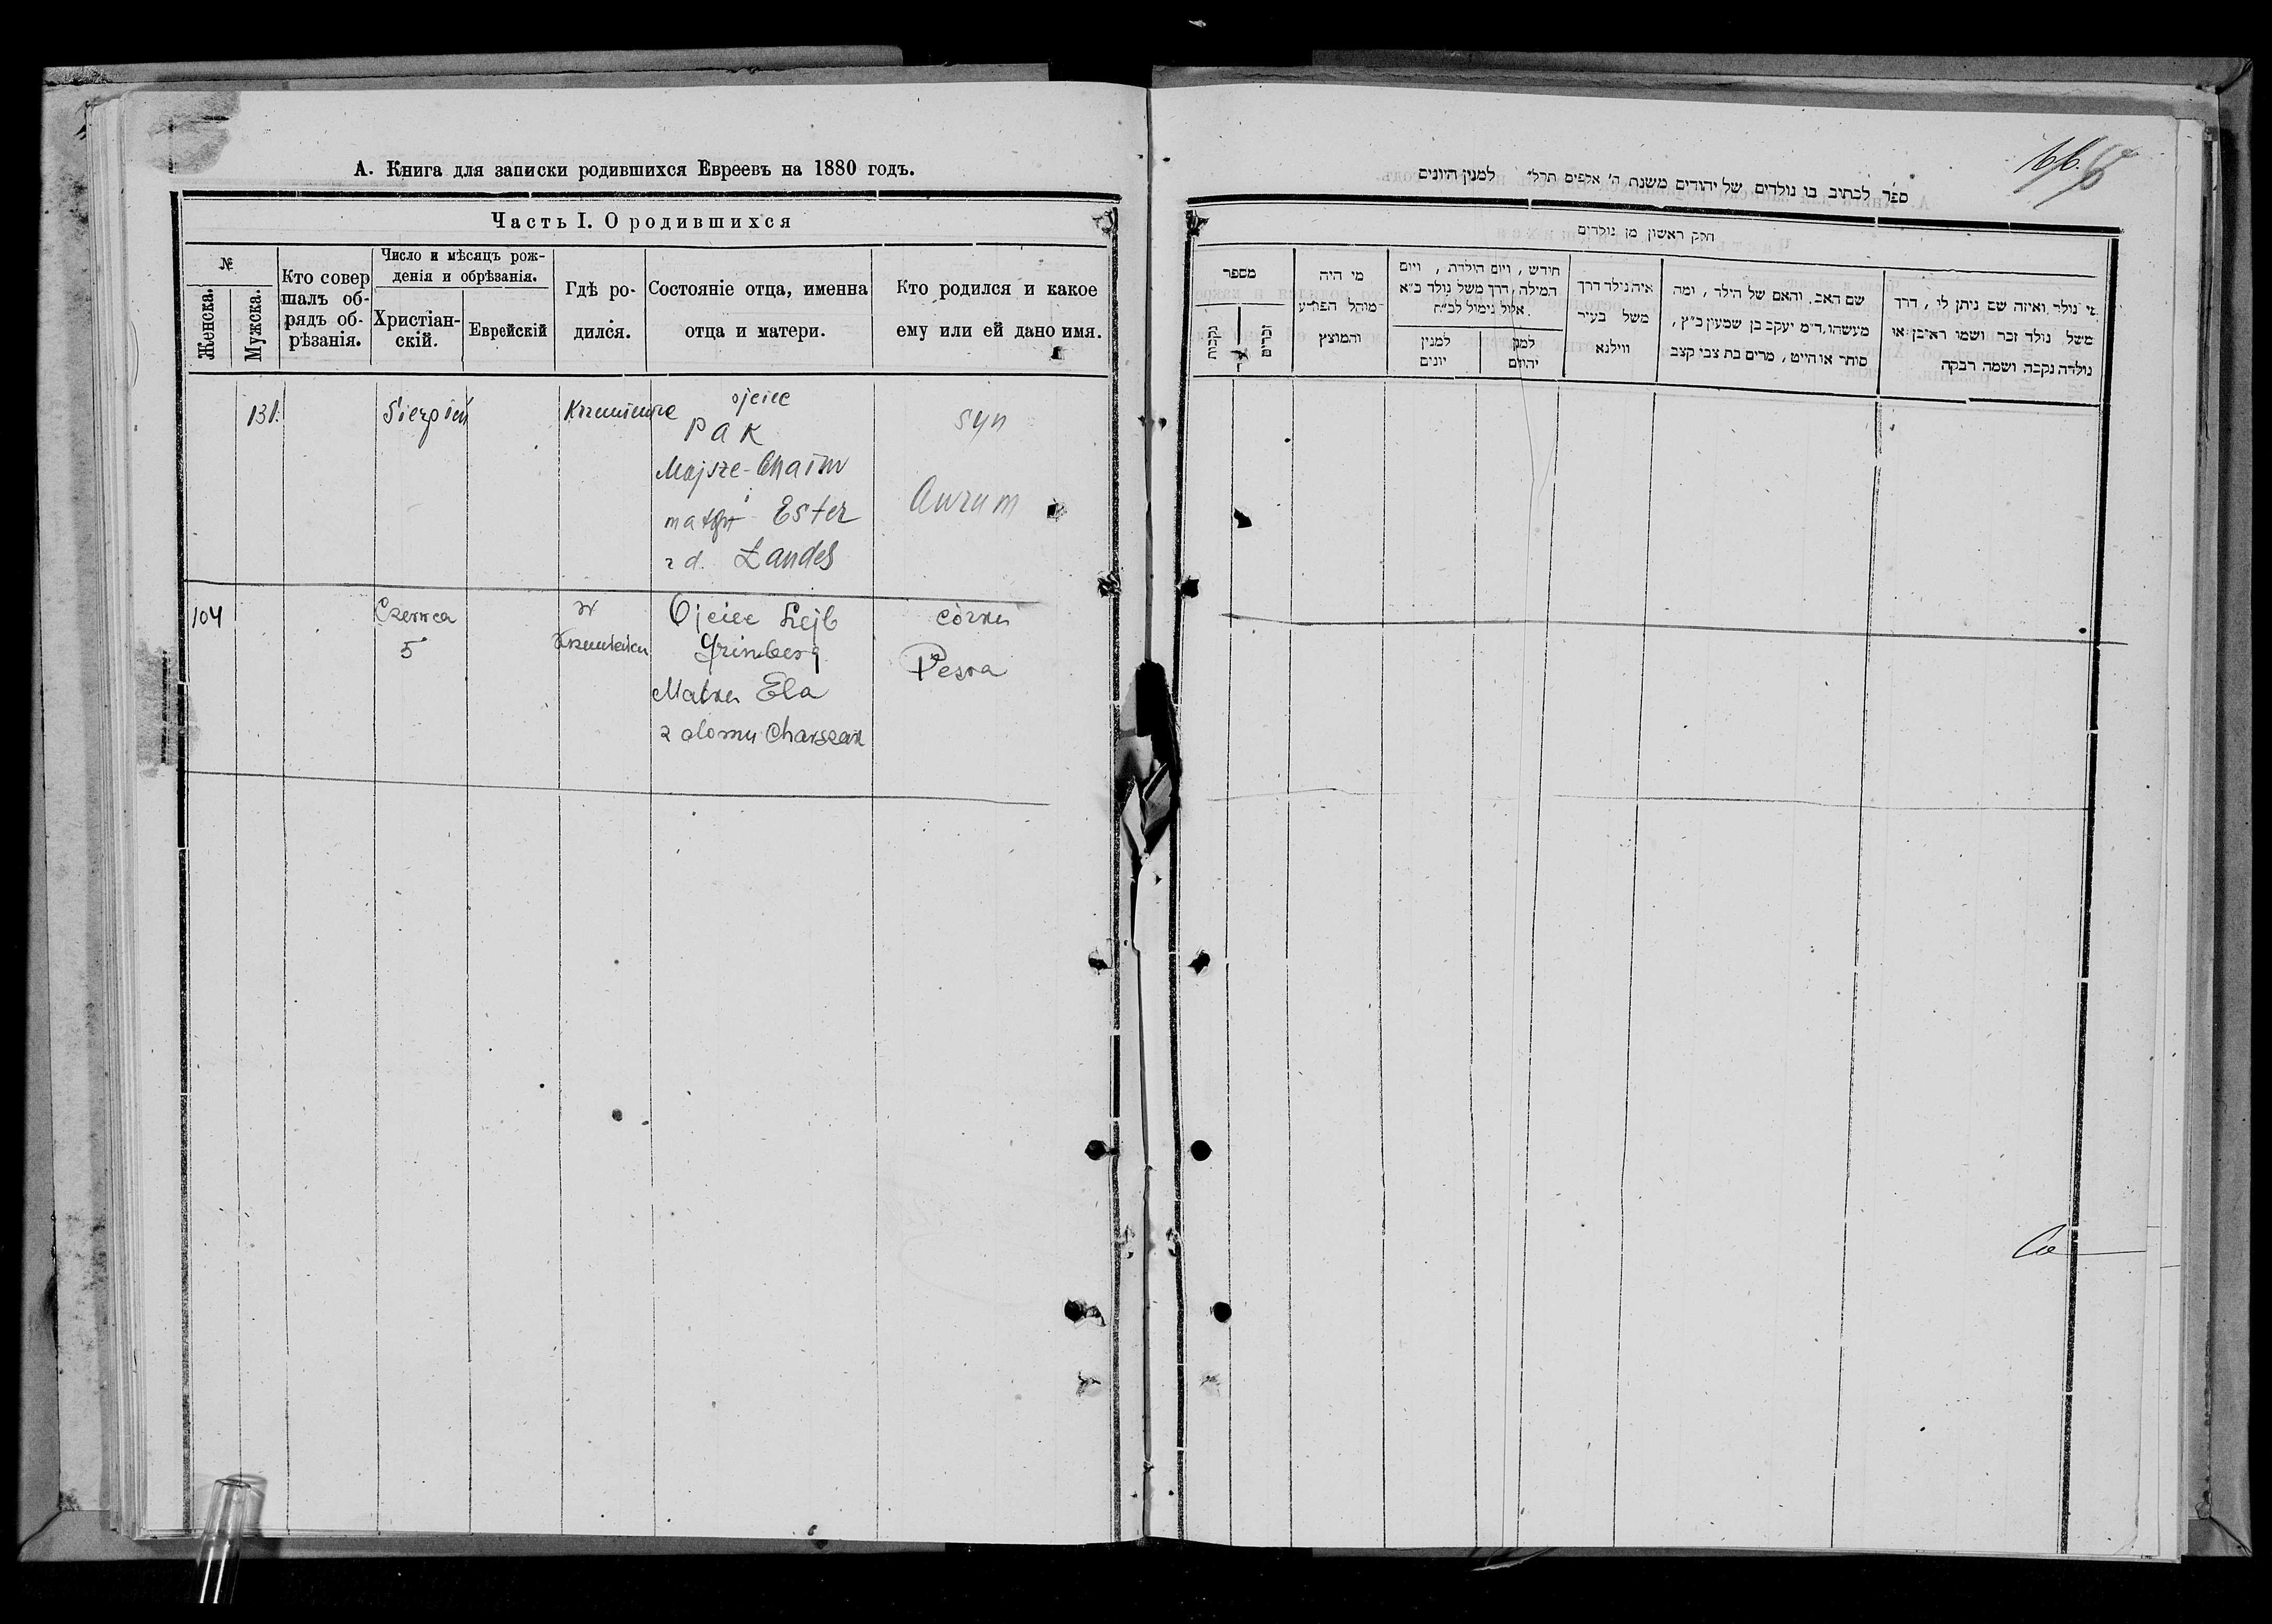 А. Книга для записки родившихся Евреевъ на 1880 годъ.
Часть I. О родившихся
№
Женска.
Мужска.
Кто совер
шалъ об-
рядъ об-
рѣзанія.
Число и мѣсяцъ рож-
денія и обрѣзанія.
Христіан-
скій.
Еврейскій
Гдѣ ро-
дился.
Состояніе отца, именна
отца и матери.
Кто родился и какое
ему или ей дано имя.
131.
Sierpień
Krzemieniec
ojciec
Pak
Mojsze-Chaim
i
Ester
z d. Landes
syn
Awrum
104
Czerwca
5
w
Krzemieńcu
Ojciec Lejb
Grinberg
Matka Ela
z domu
córka
Pesra
ספר לכתיב בו נולדים של יהודים משנת ה׳ אלפים תר״ל למנין היונים
חלק ראשון מן נולדים
מספר
נקבות
זכרים
מי היה
מוהל הפורע
והמוצץ
חודש, ויום הולדת, ויום
המילה, דרך משל נולד כ״א
אלול נימול לכ״ח
למנין
יונים
למנ
יהודים
איה נולד דרך
משל בעיר
ווילנא
שם האב, והאם של הילד, ומה
מעשהו, ד״מ יעקב בן שמעון כ״ץ,
סוחר או חייט, מרים בת צבי קצב
מי נולד ואיזה שם ניתן לו, דרך
משל, נולד זכר ושמו ראיבן או
נולדה נקבה ושמה רבקה
66.